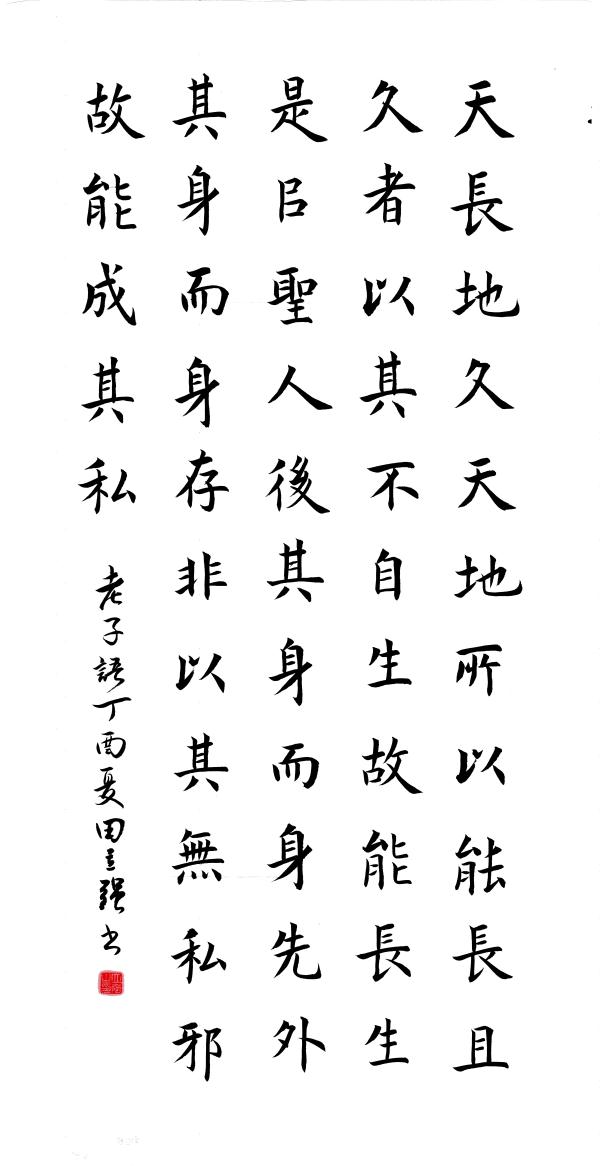 天長地久天地所以能長且
久者以其不自生故能長生
是㠯聖人後其身而身先外
其身而身存非以其無私邪
故能成其私
老子語丁酉夏田立強书